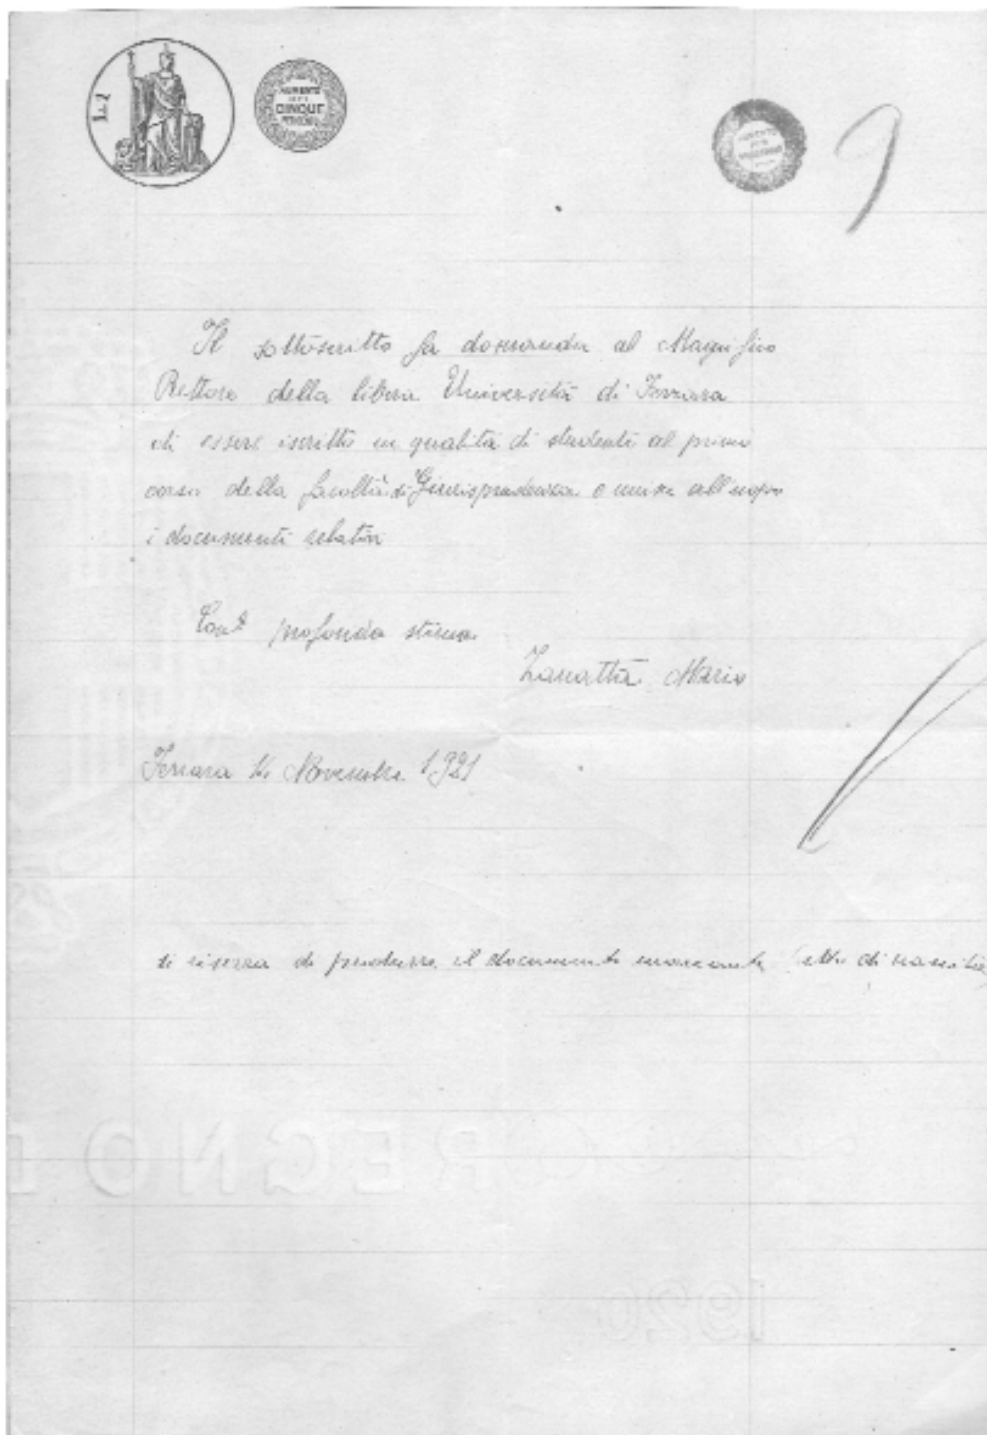 L. 1
AUMENTO
CINQUE
AUMENTO
Il sottoscritto fa domanda al Magnifico
Rettore della libera Università di Ferrara
di essere iscritto in qualità di studente al primo
corso della facoltà di Giurisprudenza e unisce all'uopo
i documenti relativi
Con profonda stima
Zanatta Mario
Ferrara Novembre 1921
si riserva di produrre il documento mancante (atto di nascita
REGNO D
1920